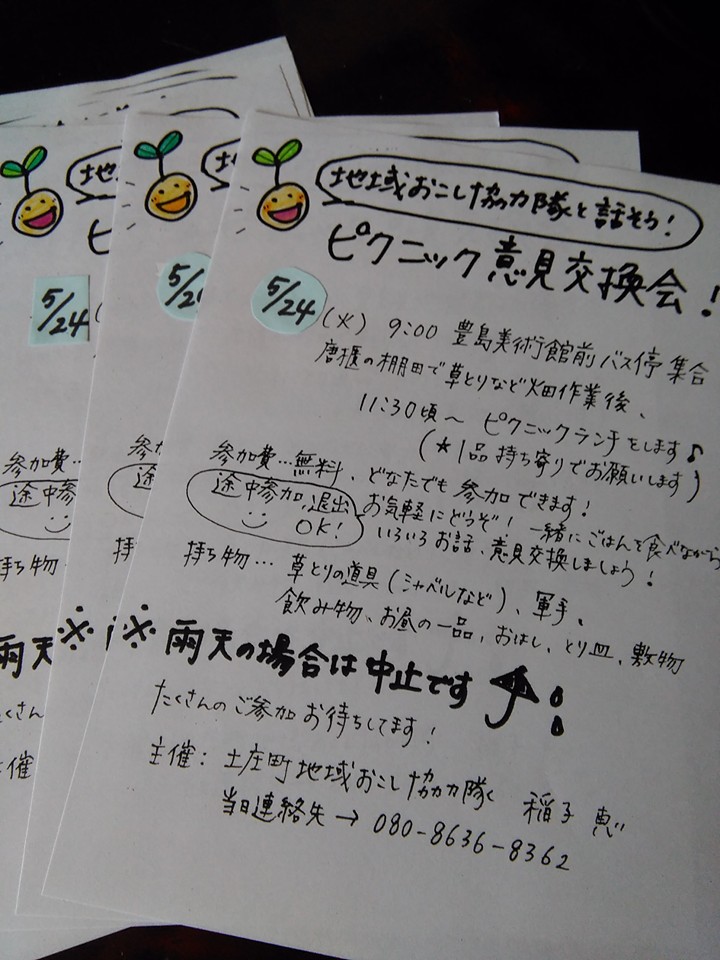 地域おこし協力隊と話そう!
ピクニック意見交換会!
5/24
(火) 9:00 豊島美術館前バス停 集合
唐櫃の棚田で草とりなど畑作業後、
11:30頃〜 ピクニックランチをします♪
(★1品持ち寄りでお願いします)
参加費…無料、どなたでも参加できます!
途中参加、退出
OK!
お気軽にどうぞ! 一緒にごはんを食べながら
いろいろお話、意見交換しましょう!
持ち物… 草とりの道具(シャベルなど)、軍手、
飲み物、お昼の一品、おはし、とり皿、敷物
※雨天の場合は中止です
たくさんのご参加お待ちしてます!
主催: 土庄町地域おこし協力隊 稲子 恵
当日連絡先→ 080-8636-8362
地
ピ
5/24
参加費‥
途中参
持ち物
雨天
くさん
催
地
5/2
参
途
持
※